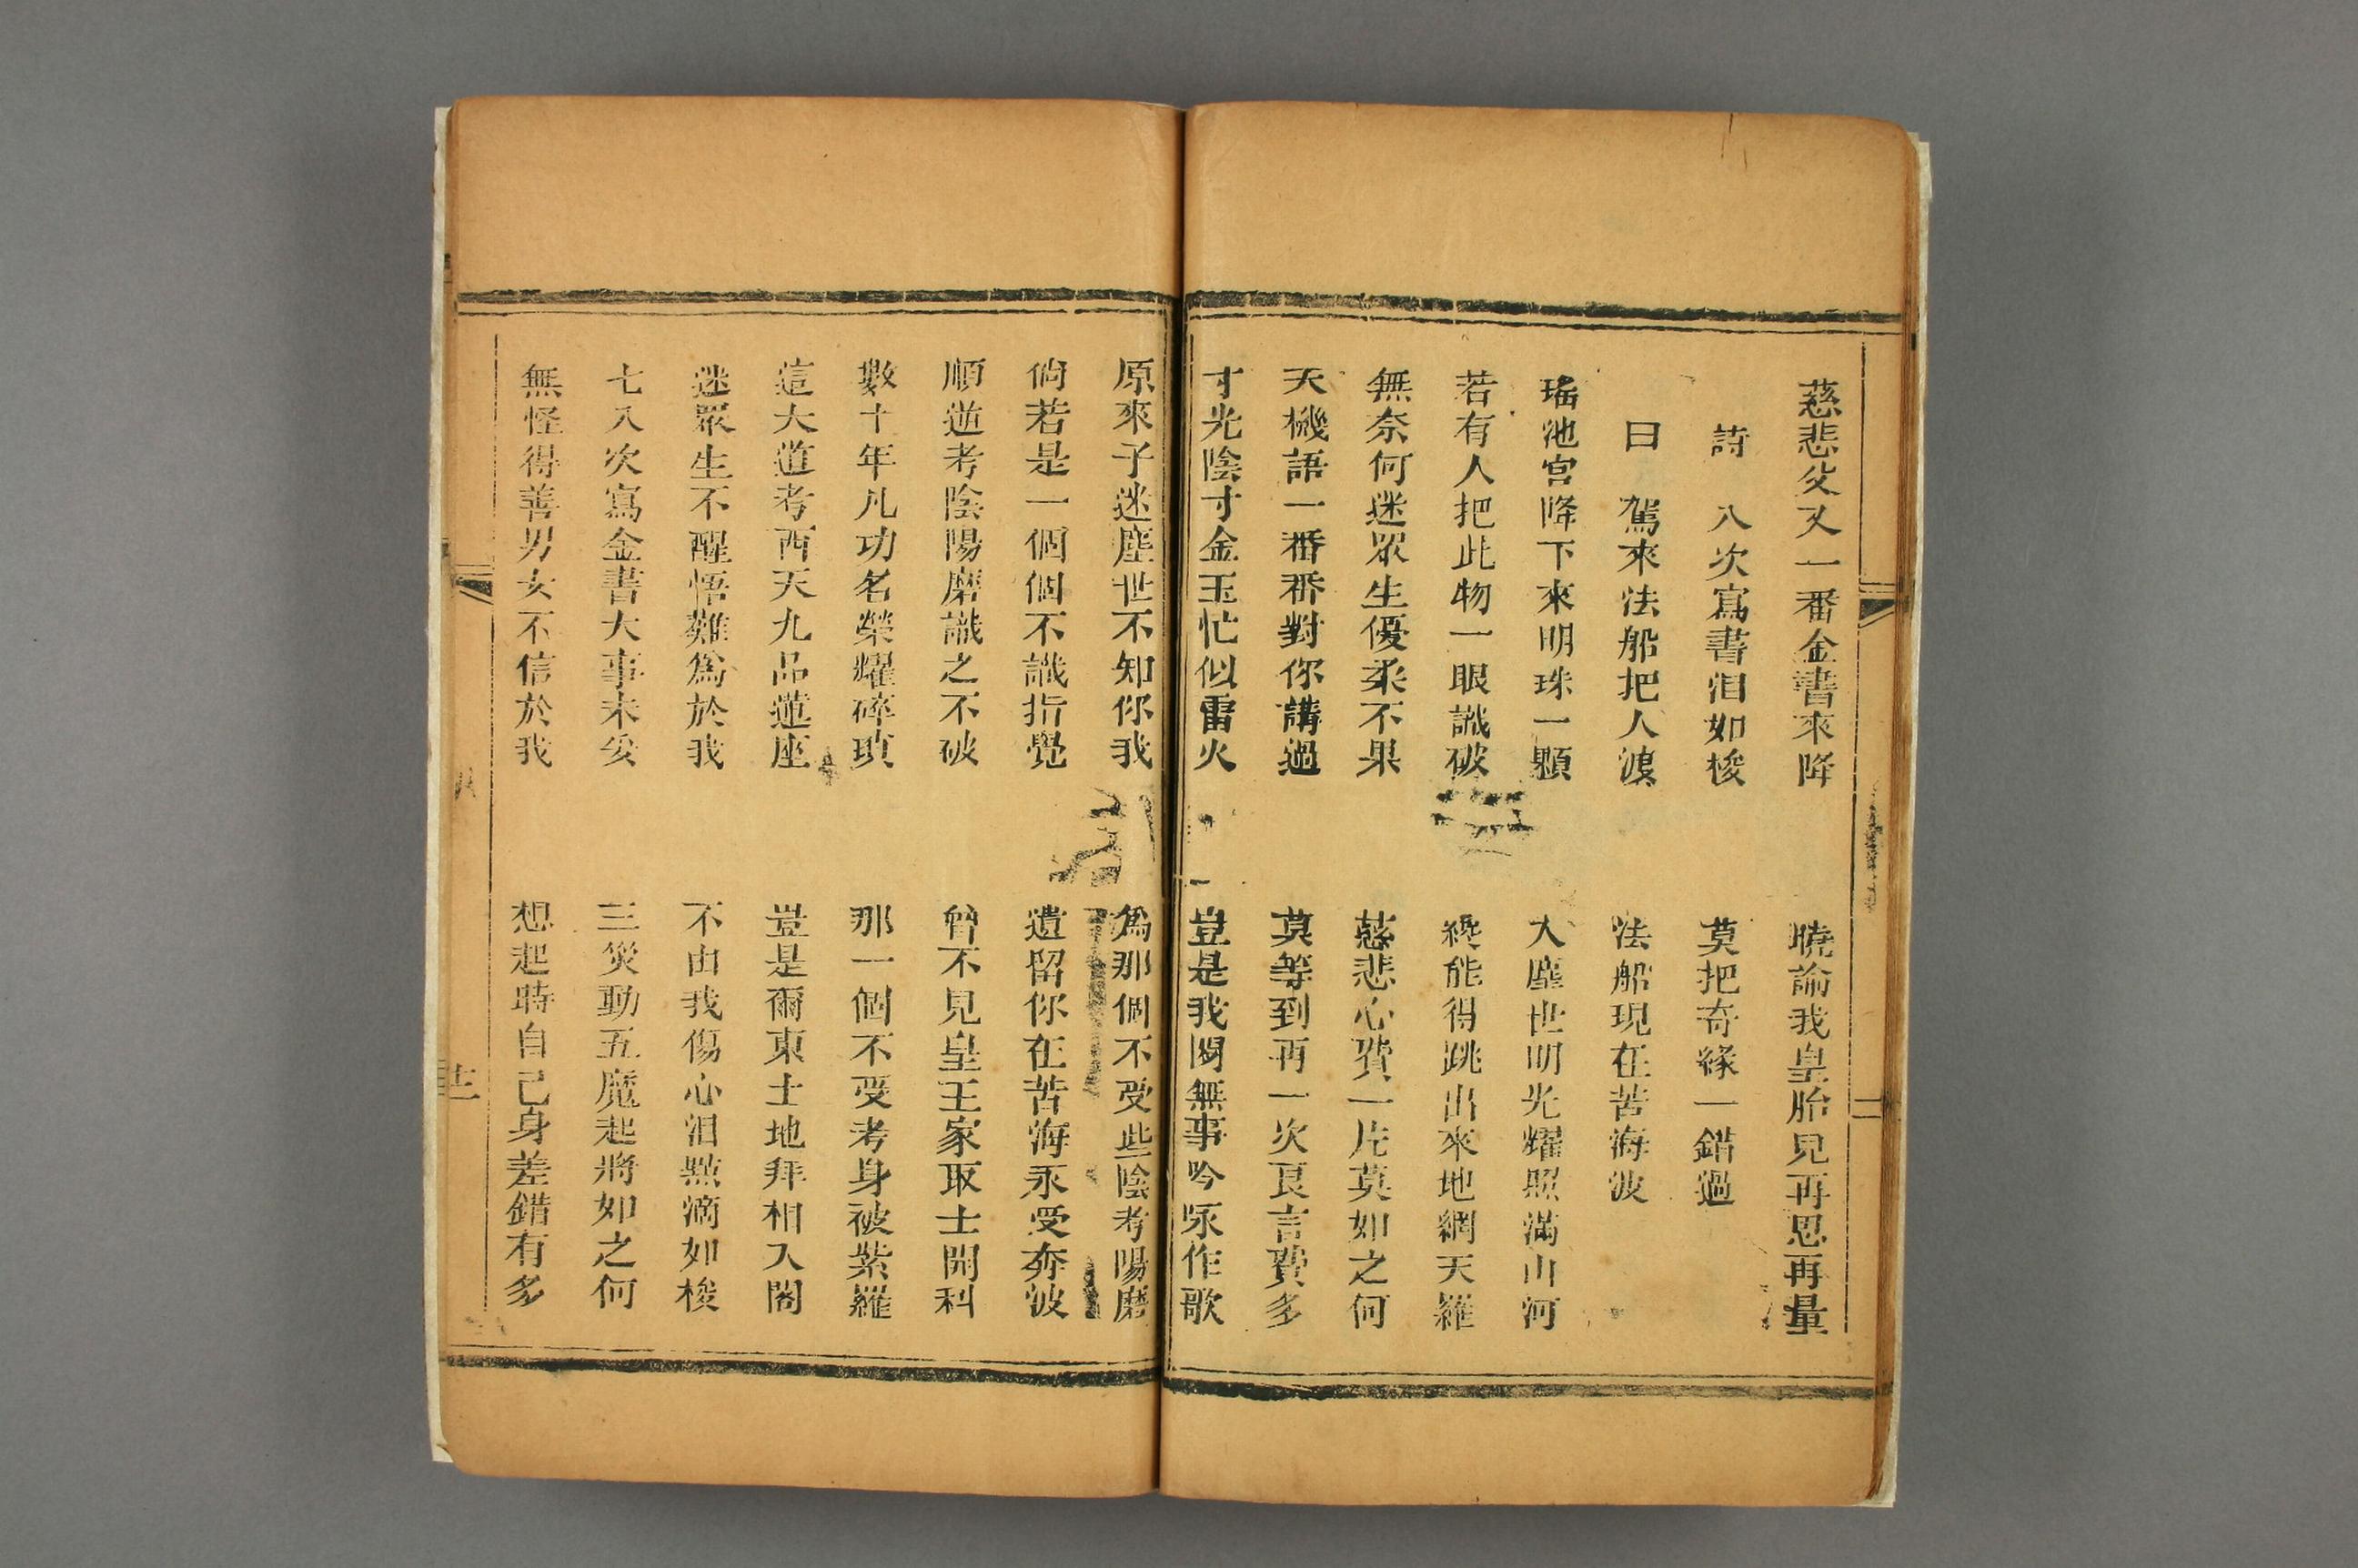 慈悲父又一番金書來降　曉諭我皇胎兒再思再量
詩　八次寫書泪如梭　莫把奇緣一錯過
曰　駕來法船把人渡　法船現在苦海波
瑤池宮降下來明珠一顆　大塵世明光耀照滿山河
若有人把此物一眼識破　纔能得跳出來地網天羅
無奈何迷眾生優柔不果　慈悲心費一片莫如之何
天機語一番番對你講過　莫等到再一次良言費多
寸光陰寸金玉忙似雷火　豈是我閑無事吟咏作歌
原來子迷塵世不知你我　為那個不受些陰考陽磨
倘若是一個個不識指覺　遺留你在苦海永受奔波
順逆考陰陽磨識之不破　曾不見皇王家取士開科
數十年凡功名榮耀碎瑣　那一個不受考身被紫羅
這大道考西天九品蓮座　豈是爾東土地拜相入閣
迷眾生不醒悟難為於我　不由我傷心泪點滴如梭
七八次寫金書大事未妥　三災動五魔起將如之何
無怪得善男女不信於我　想起時自己身差錯有多